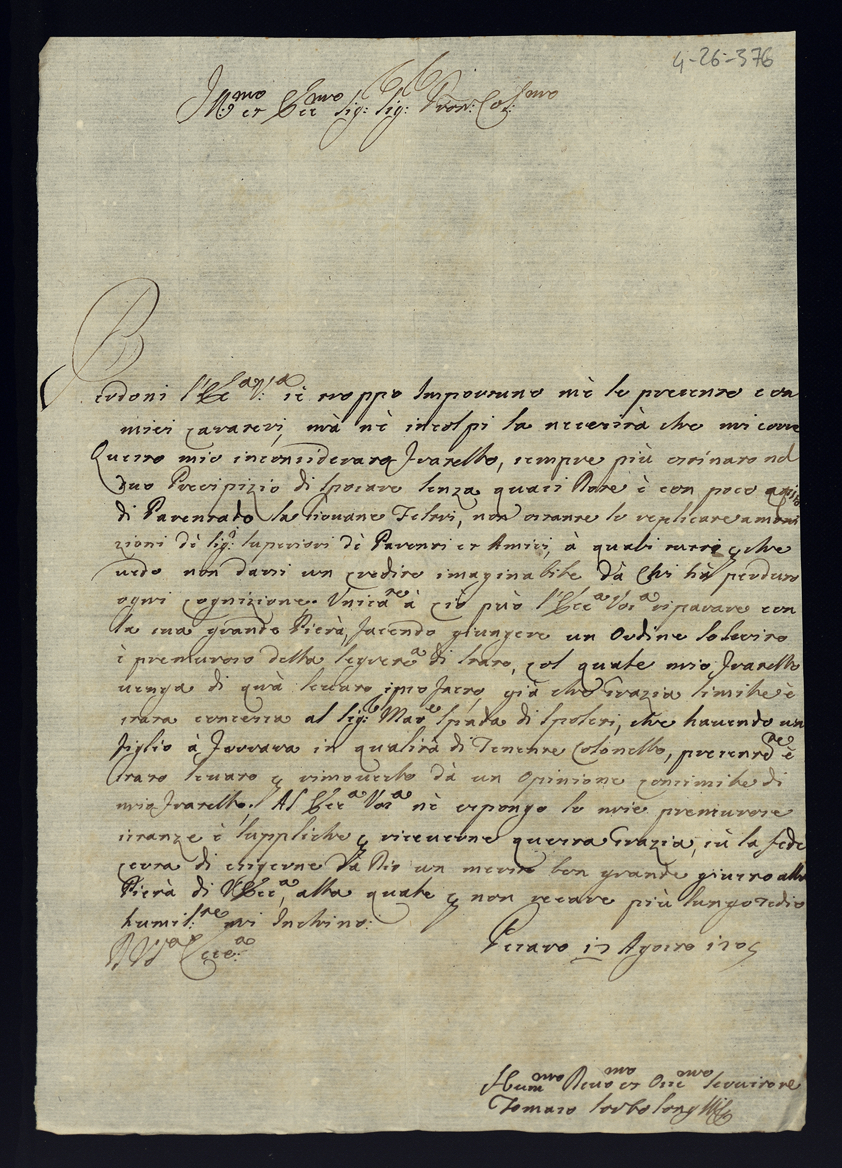 4-26-376
Ill:mo et Ecc:mo Sig: Sig: Pron: Col:mo
Perdoni l'Ecc:a V:a se troppo Importuno mè le presento con
miei caratteri, mà nè incolpi la necessità che mi corre
Questo mio inconsiderato Fratello, sempre più ostinato nel
suo Precipizio di sposare senza quasi Dote è con poco
di Parentado la Giovane Teletri, non ostante le replicate amoni
zioni dè Sig:ri Superiori dè Parenti et Amici, à quali tutti
vedo non darsi un credito imaginabile dà Chi hà perduto
ogni cognizione. Unicam:te à ciò può l'Ecc:a Vos:a riparare con
la sua grande Pietà, facendo giungere un Ordine
è premuroso della Segrete:a di Stato, col quale mio Fratello
venga di quà levato ipso facto, già che Grazia simile è
stata concessa al Sig: Mar:e Spada di Spoleti, che havendo un
figlio à Ferrara in qualità di Tenente Colonello, presentem:te è
stato levato e rimosso dà un Opinione consimile di
mio Fratello. Al Ecc:a Vos:a nè espongo le mie premurose
istanze è suppliche per riceverne questa Grazia, sù la fede
certa di esigerne Dà Dio un merito ben grande giusto alla
Pietà di V Ecc:a, alla quale per non recare più lungo tedio
humil:te mi Inchino.
Di V:a Ecc:a
Pesaro 17 Agosto 1705
Hum:mo Devo:mo et Oss:mo Servitore
Tomaso